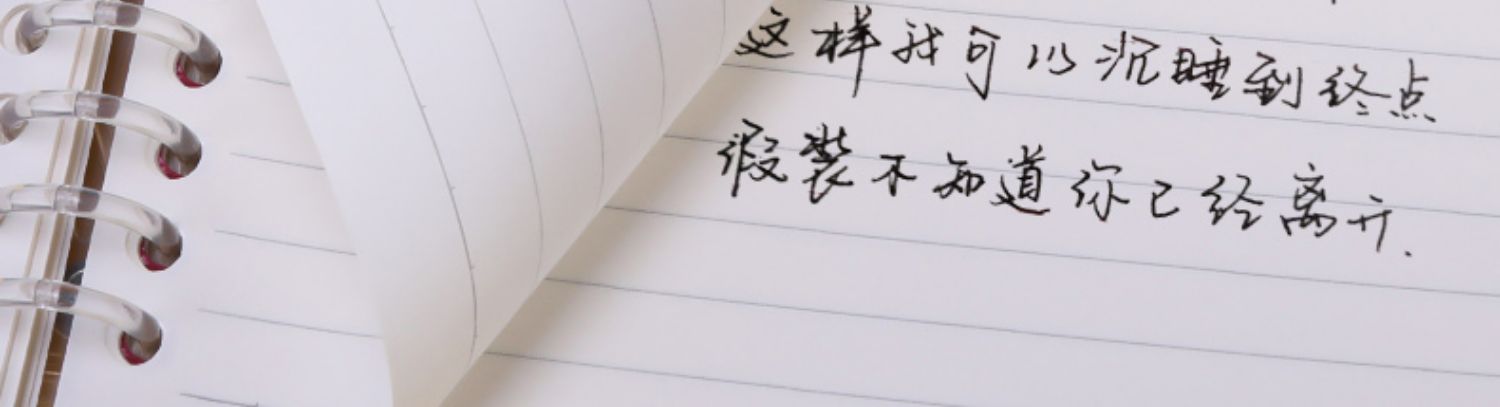 这样我可以沉睡到终点
假装不知道你已经离开.